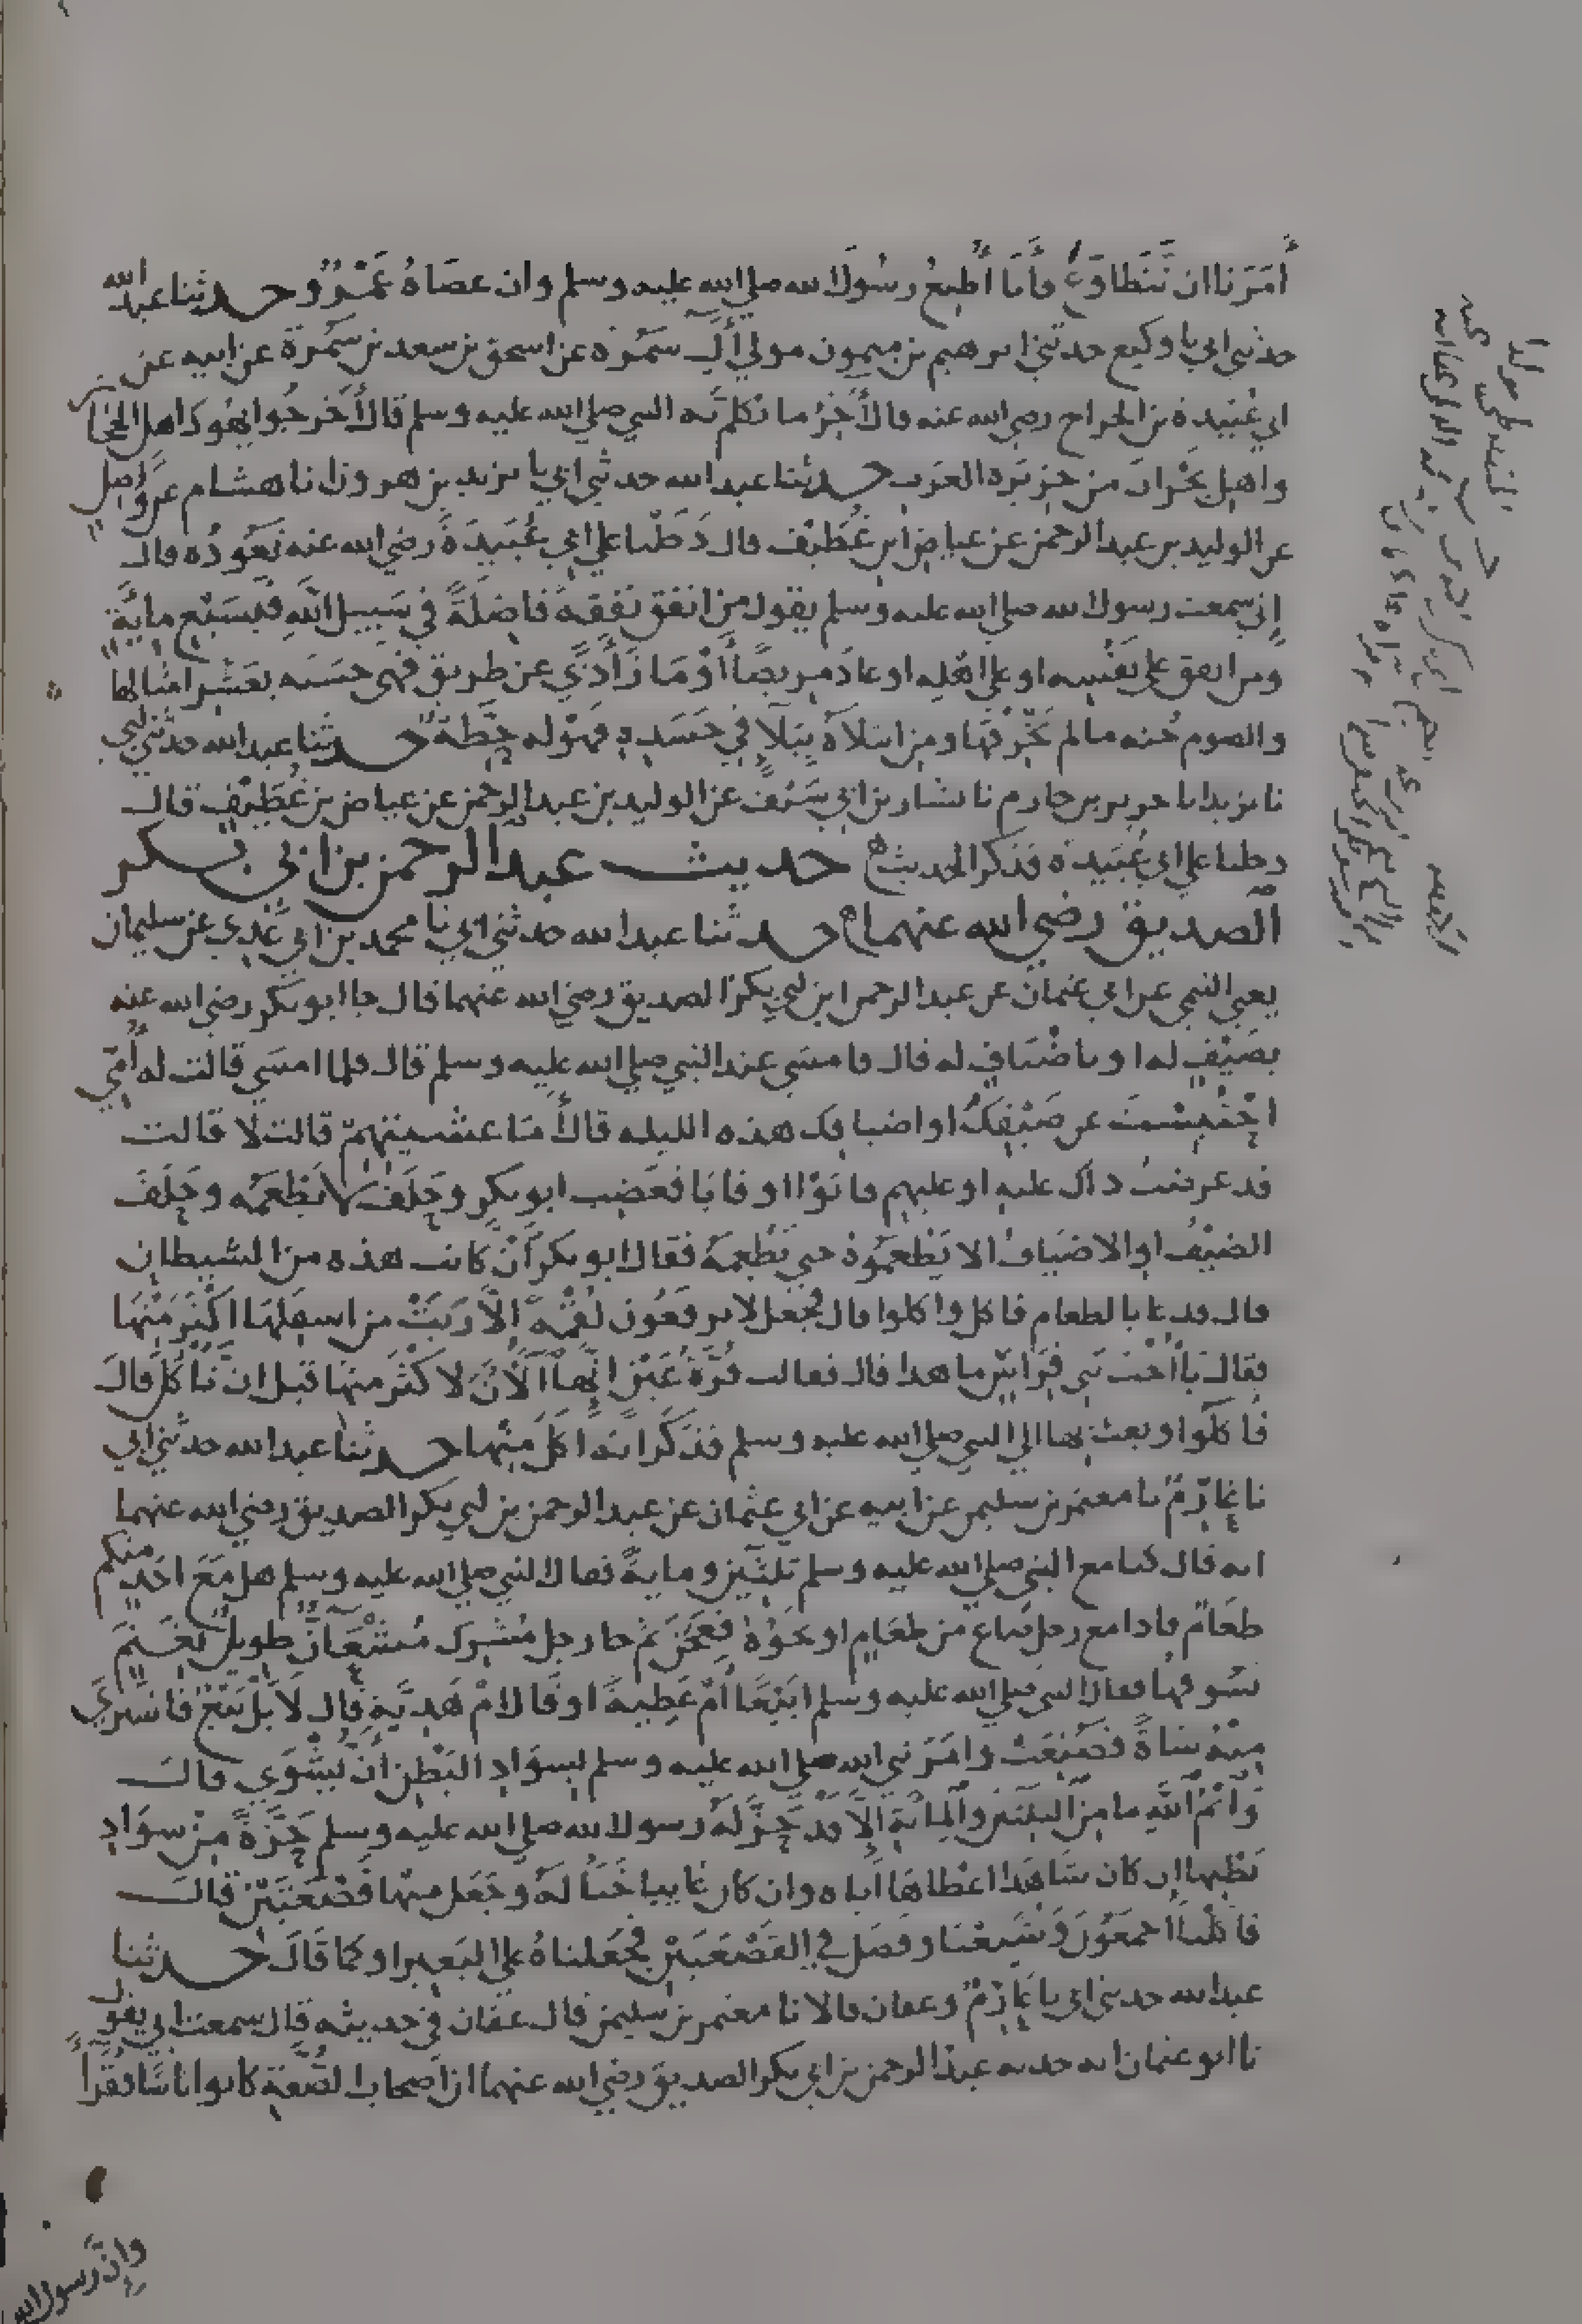 أمرنا ان نتطاوع فأنا أطيع رسول الله صلى الله عليه وسلم وان عصاه عمرو حدثنا عبد الله
حدثني ابي نا وكيع حدثني ابرهيم بن ميمون مولى آل سمرة عن اسحق بن سعد بن سمرة عن ابيه عن
ابي عبيدة بن الجراح رضي الله عنه قال أخر ما تكلم به النبي صلى الله عليه وسلم قال أخرجوا يهود اهل الحجاز
واهل نجران من جزيرة العرب حدثنا عبد الله حدثني ابي نا يزيد بن هرون انا هشام عن واصل
عن الوليد بن عبد الرحمن عن عياض ابن غطيف قال دخلنا على ابي عبيدة رضي الله عنه نعوده قال
إني سمعت رسول الله صلى الله عليه وسلم يقول من انفق نفقة فاضلة في سبيل الله فبسبع ماية
ومن انفق على نفسه او على اهله او عاد مريضا أو ماز أذى عن طريق فهي حسنه بعشر امثالها
والصوم جنه ما لم يخرقها ومن ابتلاه ببلاء في جسده فهو له حطة حدثنا عبد الله حدثني ابي
نا يزيد انا جرير بن حازم نا بشار بن ابي سيف عن الوليد بن عبد الرحمن عن عياض بن غطيف قال
دخلنا على ابي عبيده فذكر الحديث حديث عبد الرحمن بن ابي بكر
الصديق رضي الله عنهما حدثنا عبد الله حدثني ابي نا محمد بن ابي عدي عن سليمان
يعني التيمي عن ابي عثمان عن عبد الرحمن ابن ابي بكر الصديق رضي الله عنهما قال جا ابو بكر رضي الله عنه
بضيف له او باضياف له قال فامسى عند النبي صلى الله عليه وسلم قال فلما امسى قالت له أمي
احتبست عن ضيفك او اضيافك هذه الليله قال أما عشيتهم قالت لا قالت
قد عرضت ذاك عليه او عليهم فابوا او فابا فغضب ابو بكر وحلف الا يطعمه وحلف
الضيف او الاضياف الا يطعموه حتى يطعمه فقال ابو بكر أن كانت هذه من الشيطان
قال فدعا بالطعام فاكل واكلوا قال فجعل لا يرفعون لقمة إلا ربت من اسفلها اكثر منها
فقال يا أخت بني فراس ما هذا قال فقالت قرة عيني إنها الآن لاكثر منها قبل ان نأكل قال
فاكلوا وبعث بها الى النبي صلى الله عليه وسلم فذكر انه اكل منها حدثنا عبد الله حدثني ابي
نا عارم نا معتمر بن سليمن عن ابيه عن ابي عثمان عن عبد الرحمن بن ابي بكر الصديق رضي الله عنهما
انه قال كنا مع النبي صلى الله عليه وسلم ثلثين وماية فقال النبي صلى الله عليه وسلم هل مع احد منكم
طعام فاذا مع رجل صاع من طعام او نحوه فعجن ثم جا رجل مشرك مشعان طويل بغنم
يسوقها فقال النبي صلى الله عليه وسلم ابيعا أم عطية او قال ام هدية قال لا بل بيع فاشترى
منه شاة فصنعت وامر نبي الله صلى الله عليه وسلم بسواد البطن أن يشوى قال
وايم الله ما من الثلثين والمائة إلا قد حز له رسول الله صلى الله عليه وسلم حزة من سواد
بطنها إن كان شاهدا اعطاها اياه وان كان غايبا خبأ له وجعل منها قصعتين قال
فاكلنا اجمعون وشبعنا وفضل في القصعتين فجعلناه على البعير او كما قال حدثنا
عبد الله حدثني ابي نا عارم وعفان قالا نا معتمر بن سليمن قال عفان في حديثه قال سمعت ابي يقول
نا ابو عثمان انه حدثه عبد الرحمن بن ابي بكر الصديق رضي الله عنهما ان أصحاب الصفة كانوا أناسا فقرا
وإن رسول الله